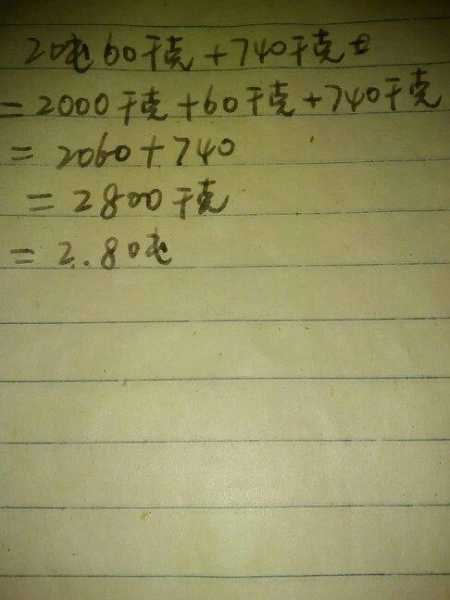 2吨60千克+740千克=
=2000千克+60千克+740千克
=2060+740
=2800千克
=2.8吨